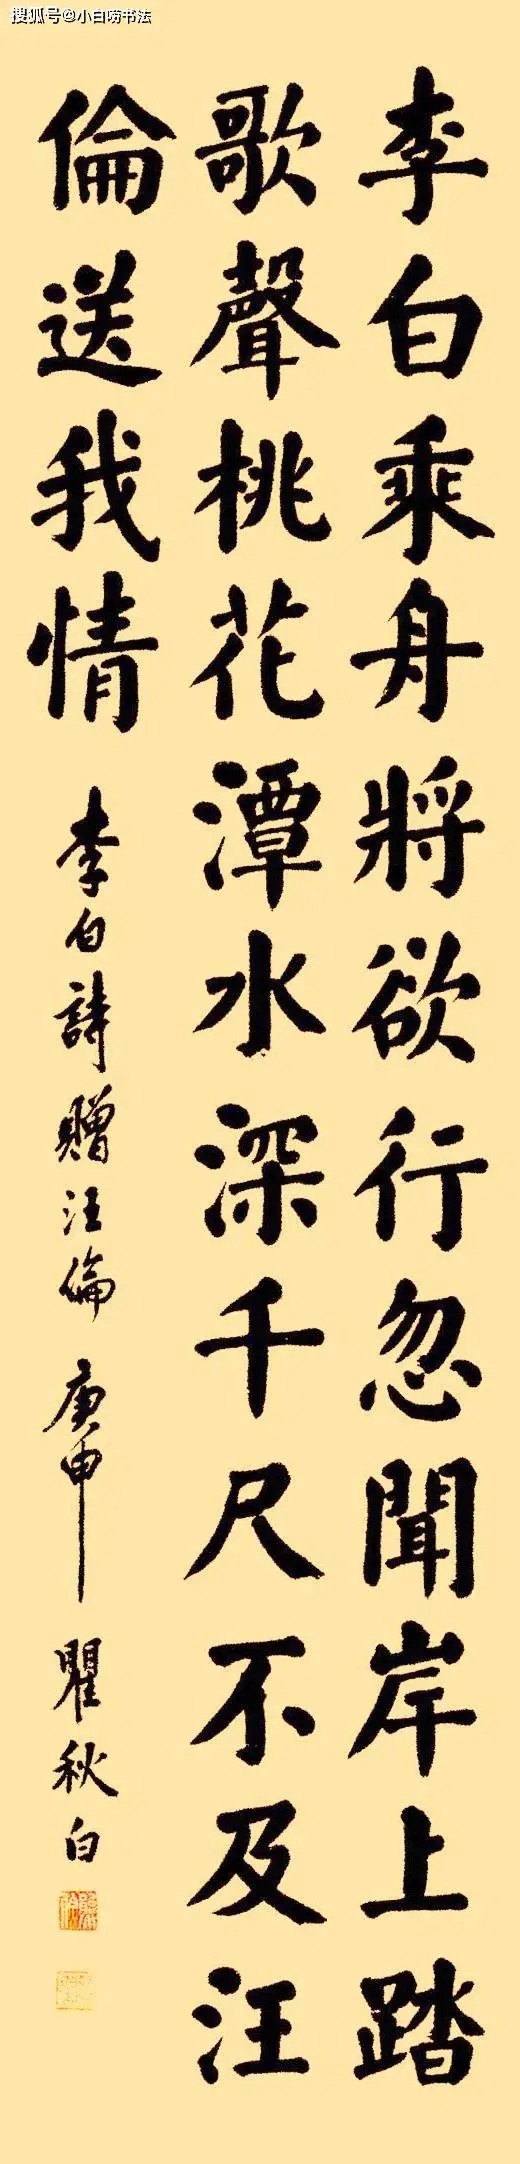 搜狐号@小白唠书法
李白乘舟將欲行忽聞岸上踏
歌聲桃花潭水深千尺不及汪
倫送我情
李白詩贈汪倫 庚申 瞿秋白